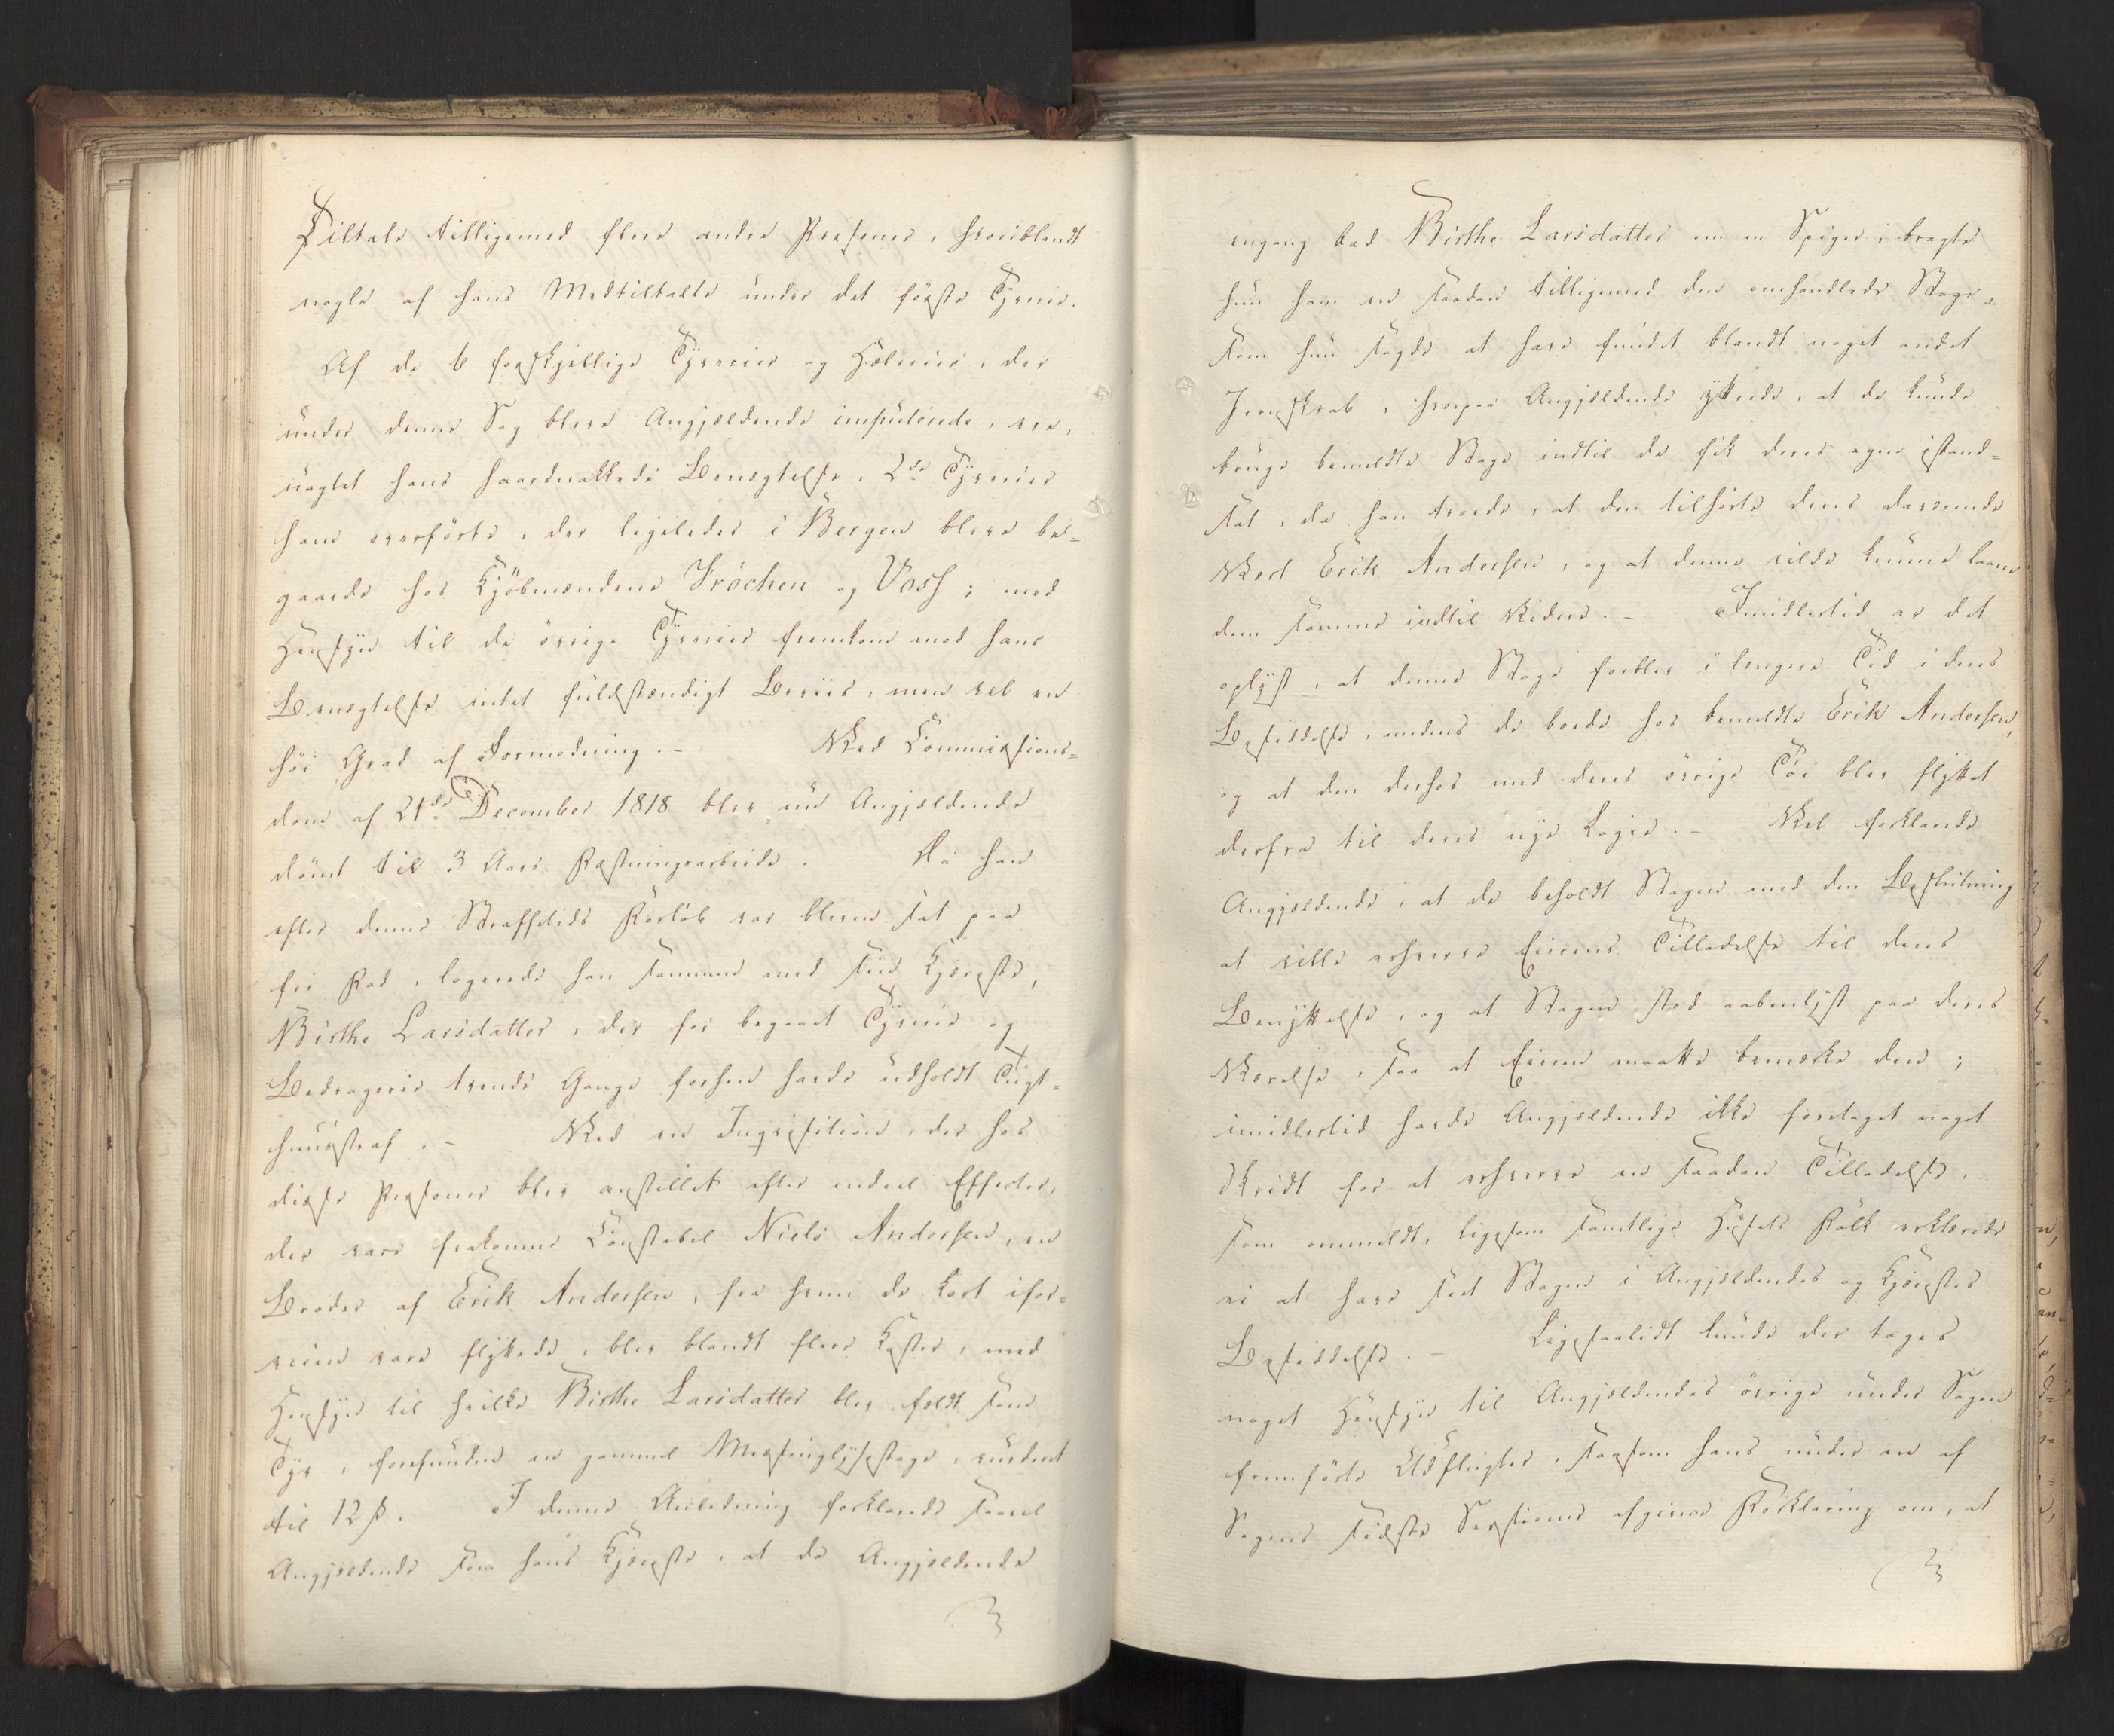 Tiltale tilligemed flere andre Personer, hvoriblandt
nogle af hans Medtiltalte under det første Tyverie.
Af de 6 forskjellige Tyverier og Hælerier, der
under denne Sag bleve Angjældende imputerede, ere,
uagtet hans haardnakkede Benægtelse, 2de Tyverier
ham overførte, der ligeledes i Bergen bleve be-
gaaede hos Kjøbmændene Fröchen og Voss; med
Hensyn til de øvrige Tyverier fremkom mod hans
Benægtelse intet fuldstændigt Beviis, men vel en
høi Grad af Formodning. – Ved Commissions-
dom af 21de December 1818 blev nu Angjældende
dømt til 3 Aars Fæstningsarbeide. Da han
efter denne Straffetids Forløb var bleven sat paa
fri Fod, logerede han sammen med sin Kjæreste,
Birthe Larsdatter, der for begaaet Tyverie og
Bedragerie trende Gange forhen havde udholdt Tugt-
huusstraf. – Ved en Inqvisition, der hos
disse Personer blev anstillet efter endeel Effecter,
der vare frakomne Constabel Niels Andersen, en
Broder af Erik Andersen, fra hvem de kort ifor-
veien vare flyttede, blev blandt flere Koster, med
Hensyn til hvilke Birthe Larsdatter blev fældt som
Tyv, forefunden en gammel Messinglysestage, vurderet
til 12 ß. I denne Anledning forklarede saavel
Angjældende som hans Kjæreste, at da Angjældende
engang bad Birthe Larsdatter om en Spiger, bragte
hun ham en saadan tilligemed den omhandlede Stage,
som hun sagde at have fundet blandt noget andet
Jernskrab, hvorpaa Angjældende yttrede, at de kunde
bruge bemeldte Stage indtil de fik deres egne istand-
sat, da han troede, at den tilhørte deres daværende
Vært Erik Andersen, og at denne vilde kunne laane
dem samme indtil Videre. – Imidlertid er det
oplyst, at denne Stage forblev i længere Tid i deres
Besiddelse, medens de boede hos bemeldte Erik Andersen,
og at den derhos med deres øvrige Tøi blev flyttet
derfra til deres nye Logie. – Vel forklarede
Angjældende, at de beholdt Stagen med den Beslutning
at ville erhverve Eierens Tilladelse til dens
Benyttelse, og at Stagen stod aabenlyst paa deres
Værelse, saa at Eieren maatte bemærke den;
imidlertid havde Angjældende ikke foretaget noget
Skridt for at erhverve en saadan Tilladelse,
som anmeldt, ligesom samtlige Husets Folk erklærede
ei at have seet Stagen i Angjældendes og Kjærestes
Besiddelse. – Ligesaalidt kunde der tages
noget Hensyn til Angjældendes øvrige under Sagen
fremførte Udflugter, saasom hans under en af
Sagens sidste Sessioner afgivne Forklaring om, at